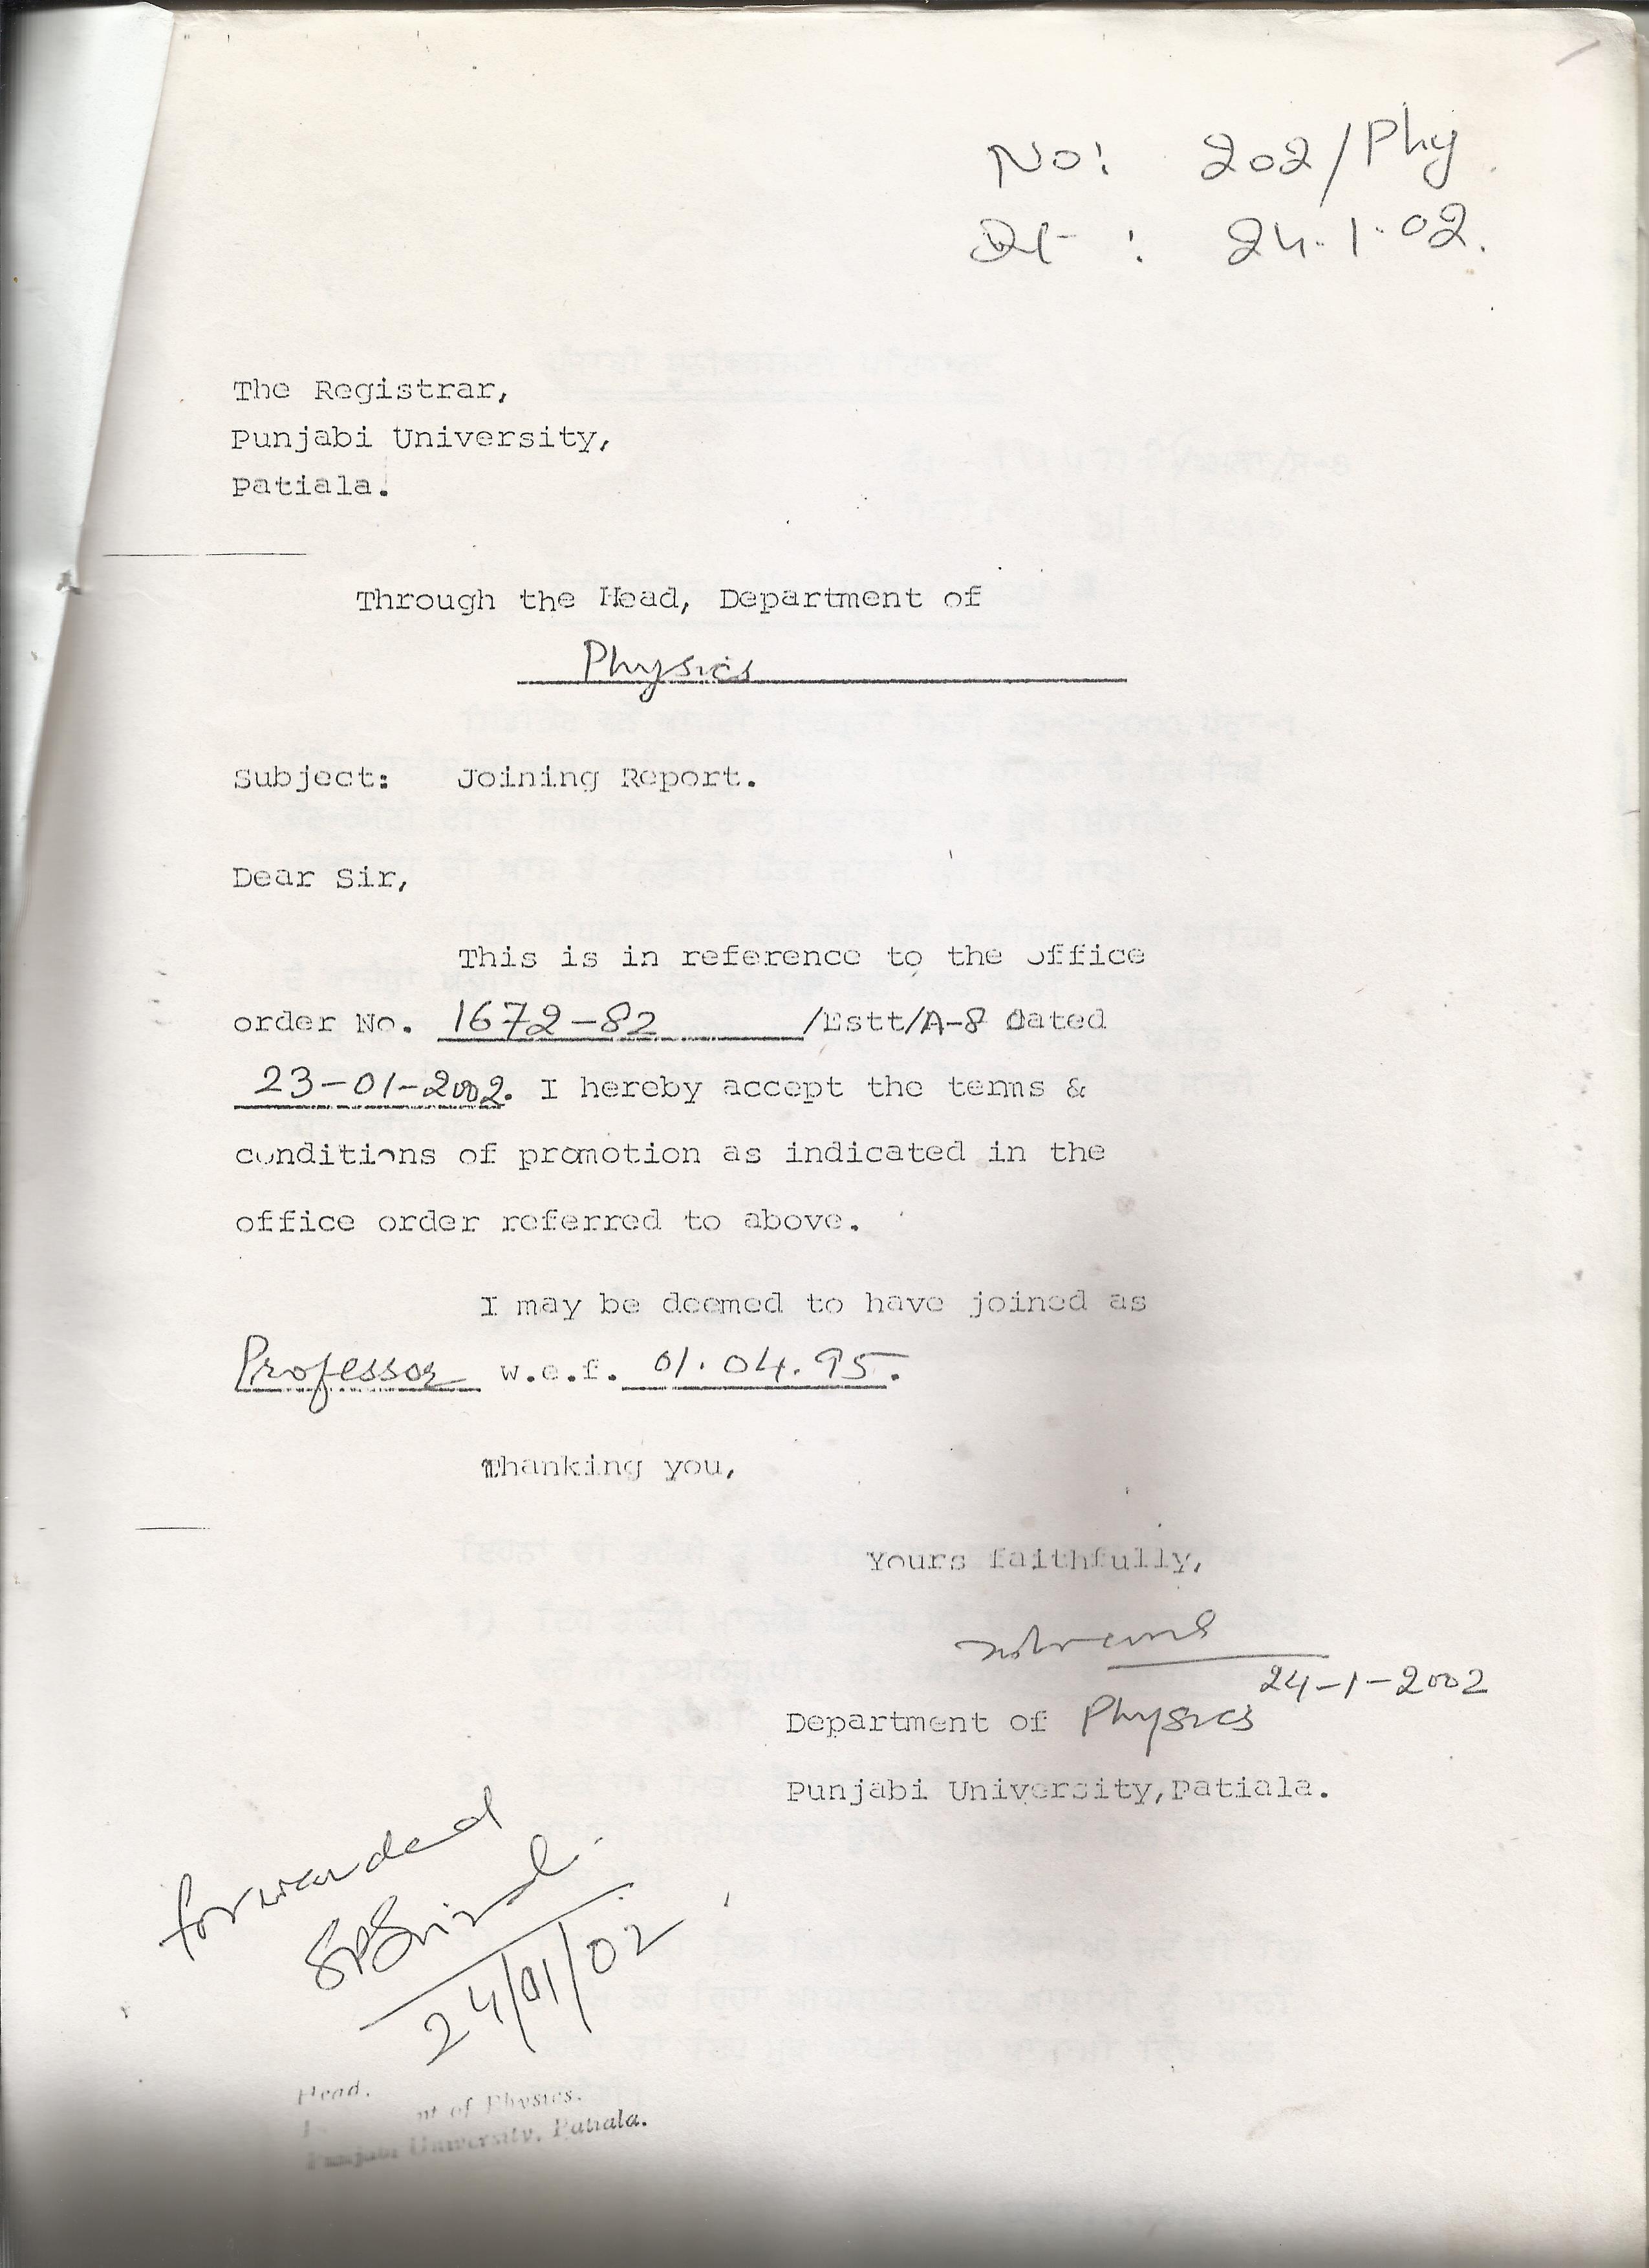 No: 202/Phy.
Dt : 24.1.02.
The Registrar,
Punjabi University,
Patiala.
Through the Head, Department of
Physics
Subject: Joining Report.
Dear Sir,
This is in reference to the office
order No. 1672-82 /Estt/A-8 Dated
23-01-2002. I hereby accept the terms &
conditions of promotion as indicated in the
office order referred to above.
I may be deemed to have joined as
Professor w.e.f. 01.04.95.
Thanking you,
Yours faithfully,
24-1-2002
Department of Physics
Punjabi University,Patiala.
forwarded
24/01/02
Head.
of Physics.
Punjabi University, Patiala.